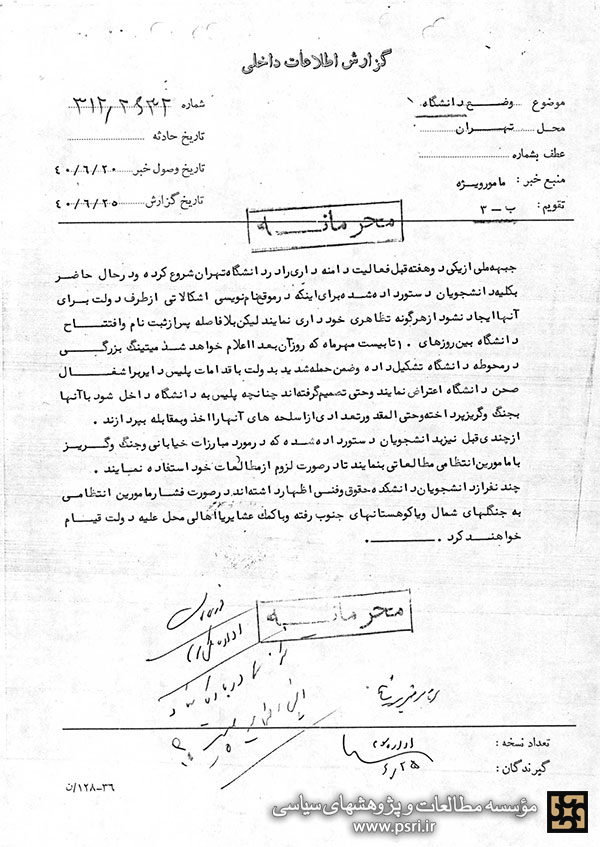 گزارش اطلاعات داخلی
موضوع وضع دانشگاه
شماره ۳۱۲/۲۶۳۲
محل تهران
تاریخ حادثه
عطف بشماره
تاریخ وصول خبر ۴۰/۶/۲۰
منبع خبر: مامورویژه
تاریخ گزارش ۴۰/۶/۲۵
تقویم: ب - ۳
محرمانه
جبهه ملی ازیکی دوهفته قبل فعالیت دامنه داری رادردانشگاه تهران شروع کرده ودرحال حاضر
بکلیه دانشجویان دستورداده شده برای اینکه درموقع نام نویسی اشکالاتی ازطرف دولت برای
آنها ایجاد نشود ازهرگونه تظاهری خودداری نمایند لیکن بلافاصله پس ازثبت نام وافتتاح
دانشگاه بین روزهای ۱۰ تا بیست مهرماه که روزآن بعدا اعلام خواهد شد میتینگ بزرگی
درمحوطه دانشگاه تشکیل داده وضمن حمله شدید بدولت باقدامات پلیس دایربراشغال
صحن دانشگاه اعتراض نمایند وحتی تصمیم گرفته اند چنانچه پلیس به دانشگاه داخل شود باآنها
بجنگ وگریزپرداخته وحتی المقدورتعدادی ازاسلحه های آنهارااخذ وبمقابله بپردازند .
ازچندی قبل نیزبدانشجویان دستورداده شده که درمورد مبارزات خیابانی وجنگ وگریز
با مامورین انتظامی مطالعاتی بنمایند تادرصورت لزوم ازمطالعات خود استفاده نمایند .
چند نفرازدانشجویان دانشکده حقوق وفنی اظهارداشته اند درصورت فشارمامورین انتظامی
به جنگلهای شمال ویاکوهستانهای جنوب رفته وباکمک عشایریااهالی محل علیه دولت قیام
خواهند کرد .
محرمانه
تعداد نسخه :
گیرندگان :
۶/۲۵
۳۶-۱۲۸/ن
مؤسسه مطالعات و پژوهشهای سیاسی
www.psri.ir